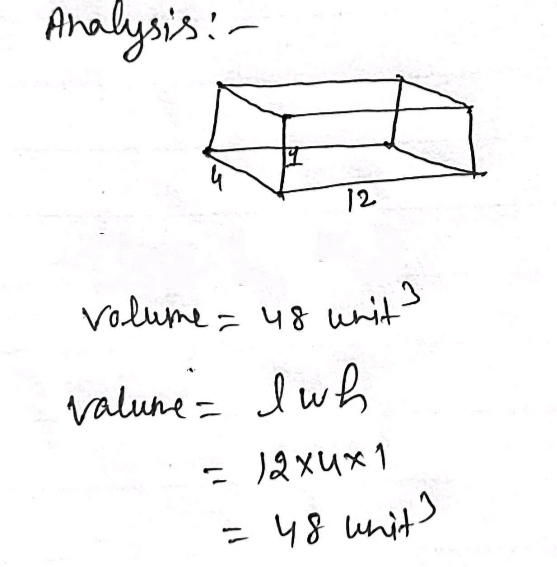 Analysis:-
1
4
12
Volume = 48 unit³
Valume = lwh
= 12×4×1
= 48 unit³